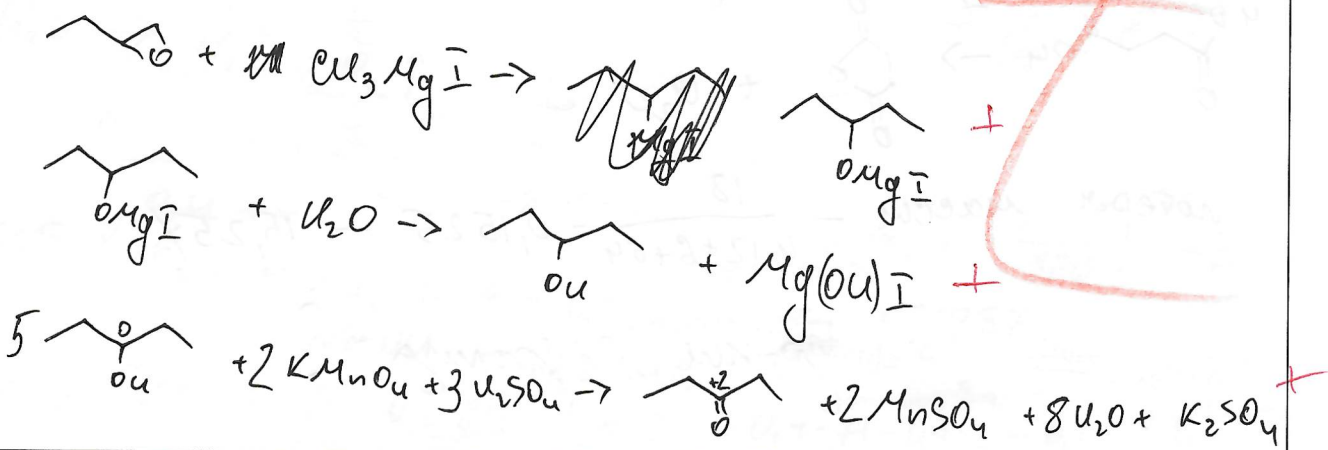 O + CH₃MgI → OMgI +
OMgI + H₂O → OH + Mg(OH)I +
5 0 OH + 2 KMnO₄ + 3 H₂SO₄ → +2 O + 2 MnSO₄ + 8 H₂O + K₂SO₄ +